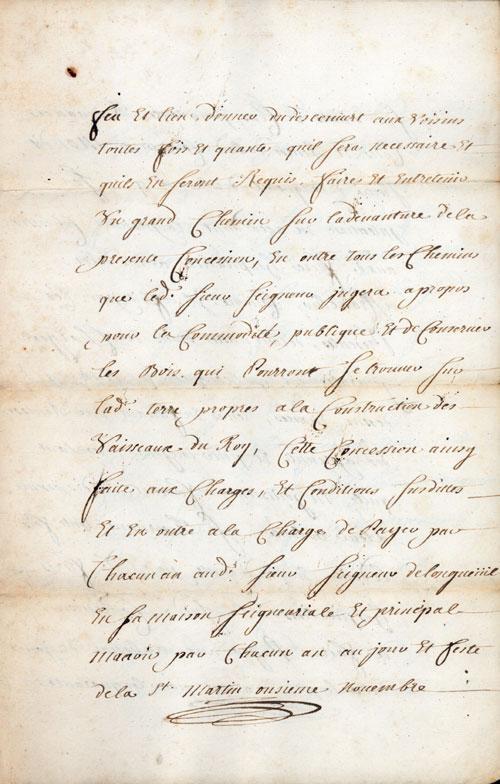 feu Et lieu donner du descouvert aux Voisins
toutes fois et quantes quil sera necessaire Et
quils En seront Requis, faire Et Entretenir
Un grand Chemin sur la devanture de la
presente Concession, En outre tous les Chemins
que led. sieur Seigneur jugera apropos
pour la Commodité, publique Et de Conserver
les Bois qui Pourront se trouver sur
lad. terre propres a la Construction des
Vaisseaux du Roy, Cette Concession ainsy
faite aux Charges, Et Conditions susdites
Et En outre a la Charge de Payer par
Chacun an aud. sieur Seigneur de longueuil
En sa maison Seigneuriale Et principal
manoir par Chacun an au jour Et feste
de la St. Martin onsieme Novembre